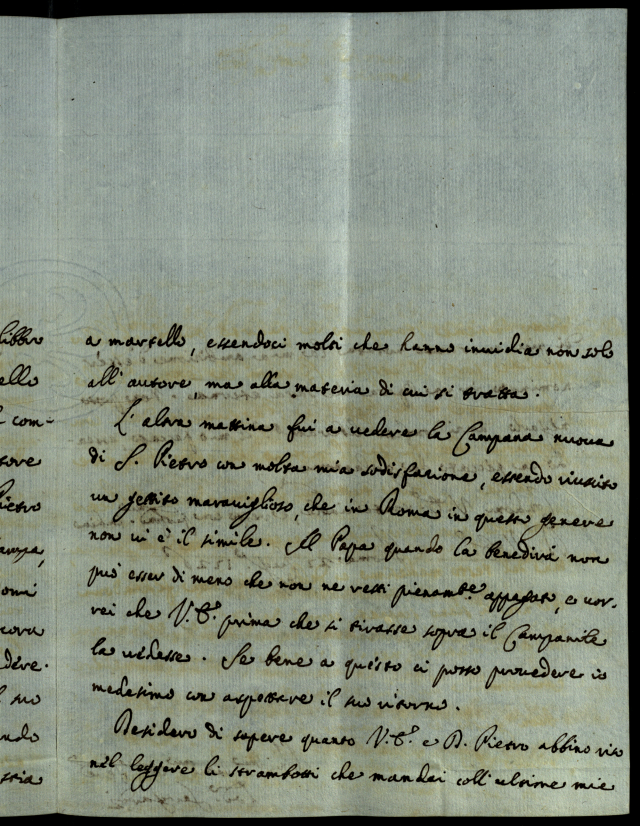 libbro
ello
l com-
tore
Pietro
tampa,
omi
cora
dere.
l suo
ndo
stia
a martello, essendoci molti che hanno invidia non solo
all'autore, ma alla materia di cui si tratta.
L'altra mattina fui a vedere la Campana nuova
di S. Pietro con molta mia sodisfazione, essendo riuscito
un gettito maraviglioso, che in Roma in questo genere
non vi è il simile. Il Papa quando la benedirà non
può esser di meno che non ne resti pienamte. appagato, e vor-
rei che V.E. prima che si tirasse sopra il Campanile
la vedesse. Se bene a questo ci posso provedere io
medesimo con aspettare il suo ritorno.
Desidero di sapere quanto V.E. e D. Pietro abbino riso
nel leggere li strambotti che mandai coll'ultime mie